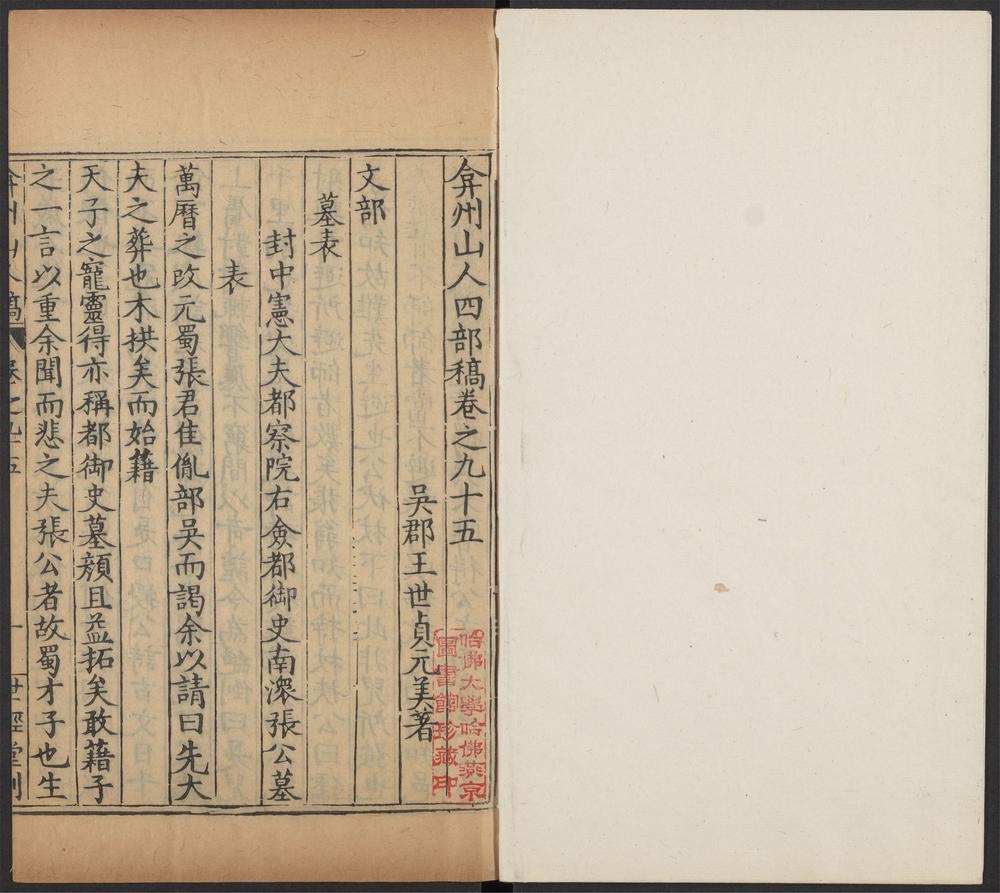 弇州山人四部稿卷之九十五
吳郡王世貞元美著
文部
墓表
封中憲大夫都察院右僉都御史南溟張公墓
表
萬曆之改元蜀張君佳胤部吳而謁余以請曰先大
夫之葬也木拱矣而始藉
天子之寵靈得亦稱都御史墓頯且益拓矣敢藉子
之一言以重余聞而悲之夫張公者故蜀才子也生
弇州山人稿 卷之九十五 一 世經堂刻
哈佛大學哈佛燕京
圖書館珍藏印